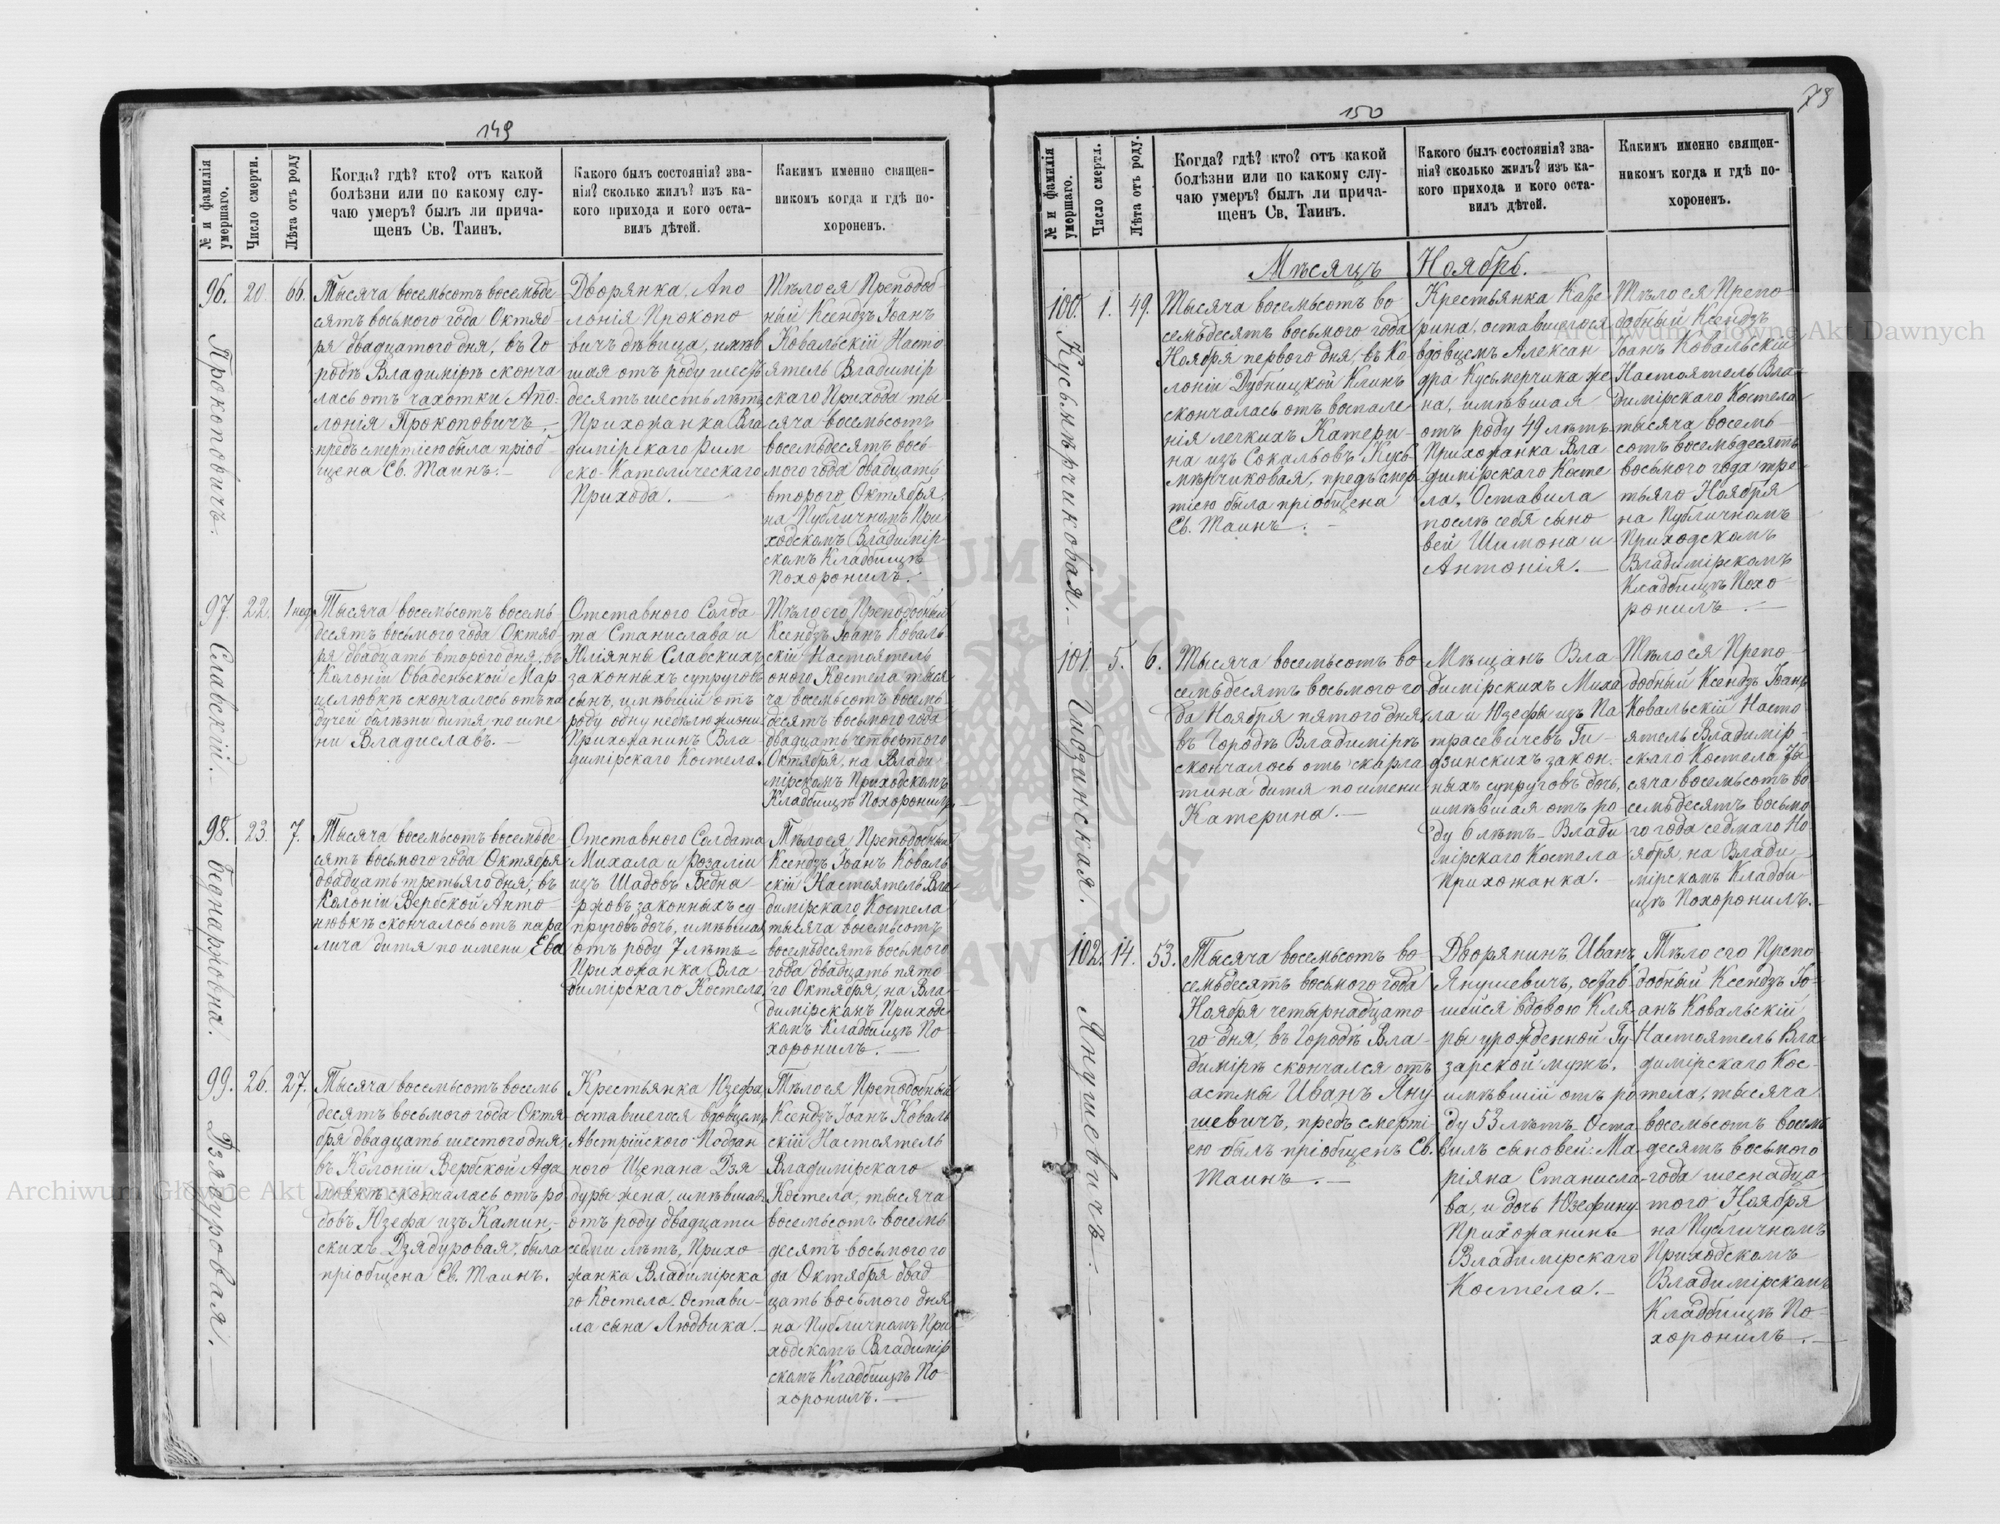 149
№ и фамилія умершаго.
Число смерти.
Лѣта отъ роду
Когда? гдѣ? кто? отъ какой
болѣзни или по какому слу-
чаю умеръ? былъ ли прича-
щенъ Св. Таинъ.
Какого былъ состоянія? зва-
нія? сколько жилъ? изъ ка-
кого прихода и кого оста-
вилъ дѣтей.
Какимъ именно священ-
никомъ когда и гдѣ по-
хороненъ.
96.
Прокоповичъ.
20.
66.
Тысяча восемьсотъ восемьде
сятъ восьмого года Октяб-
ря двадцатого дня, въ Го
родѣ Владимірѣ сконча
лась отъ чахотки Апо-
лонія Прокоповичъ,
предъ смертію была пріоб-
щена Св. Таинъ.—
Дворянка Апо
лонія Прокопо
вичъ дѣвица, имѣв
шая отъ роду шесть
десятъ шесть лѣтъ
Прихожанка Вла
димірского Рим
ско-Католическаго
Прихода.—
Тѣло ея Преподоб
ный Ксендзъ Іоанъ
Ковальскій Насто
ятель Владимір
скаго Прихода ты
сяча восемьсотъ
восемьдесятъ вось
мого года двадцать
второго Октября,
на Публичномъ При
ходскомъ Владимір-
скомъ Кладбищѣ
Похоронилъ.—
97.
Славскій.
22.
1 нед
Тысяча восемьсотъ восемь
десятъ восьмого года Октяб-
ря двадцать второго дня, въ
Колоніи Оваденьской Мар
целювкѣ скончалось отъ па
дучей болѣзни дитя по име
ни Владиславъ.—
Отставного Солда
та Станислава и
Юліянны Славскихъ
законныхъ супруговъ
сынъ, имѣвшій отъ
роду одну недѣлю жизни
Прихожанинъ Вла
димірскаго Костела.
Тѣло его Преподобный
Ксендзъ Іоанъ Коваль
скій Настоятель
оного Костела тыся
ча восемьсотъ восемь
десятъ восьмого года
двадцать четвертого
Октября, на Влади
мірскомъ Приходскомъ
Кладбищѣ Похоронилъ.—
98.
Беднаржовна.
23.
7.
Тысяча восемьсотъ восемьде
сятъ восьмого года Октября
двадцать третьяго дня, въ
Колоніи Вербской Анто-
нювкѣ скончалось отъ пара
лича дитя по имени Ева
Отставного Солдата
Михала и Розаліи
изъ Шадовъ Бедна-
ржовъ законныхъ су
пруговъ дочь, имѣвшая
отъ роду 7 лѣтъ—
Прихожанка Вла
димірскаго Костела.
Тѣло ея Преподобный
Ксендзъ Іоанъ Коваль
скій Настоятель Вла
димірскаго Костела
тысяча восемьсотъ
восемьдесятъ восьмого
года двадцать пято
го Октября, на Вла-
димірскомъ Приход
скомъ Кладбищѣ По-
хоронилъ.—
99.
Дзядуровая.
26.
27.
Тысяча восемьсотъ восемь
десятъ восьмого года Октя
бря двадцать шестого дня,
въ Колоніи Вербской Ада
мовкѣ скончалась отъ ро
довъ Юзефа изъ Камин-
скихъ Дзядуровая, была
пріобщена Св. Таинъ.
Крестьянка Юзефа,
оставшегося вдовцемъ
Австрійского Поддан
ного Щепана Дзя
дуры жена, имѣвшая
отъ роду двадцати
семи лѣтъ, Прихо
жанка Владимірска
го Костела. Остави-
ла сына Людвика.—
Тѣло ея Преподобный
Ксендзъ Іоанъ Коваль
скій Настоятель
Владимірскаго
Костела, тысяча
восемьсотъ восемь
десятъ восьмого го
да Октября двад
цать восьмого дня
на Публичномъ При
ходскомъ Владимір
скомъ Кладбищѣ По-
хоронилъ.—
150
№ и фамилія умершаго.
Число смерти.
Лѣта отъ роду.
Когда? гдѣ? кто? отъ какой
болѣзни или по какому слу-
чаю умеръ? былъ ли прича-
щенъ Св. Таинъ.
Какого былъ состоянія? зва-
нія? сколько жилъ? изъ ка-
кого прихода и кого оста-
вилъ дѣтей.
Какимъ именно священ-
никомъ когда и гдѣ по-
хороненъ.
Мѣсяцъ Ноябрь.
100.
Кусьмѣрчиковая.—
1.
49.
Тысяча восемьсотъ во
семьдесятъ восьмого года
Ноября первого дня, въ Ко
лоніи Дубницкой Клинъ
скончалась отъ воспале
нія легкихъ Катери-
на изъ Сокальовъ Кусь-
мѣрчиковая, предъ смер-
тію была пріобщена
Св. Таинъ.—
Крестьянка Кате
рина, оставшегося
вдовцемъ Алексан
дра Кусьмерчика же
на, имѣвшая
отъ роду 49 лѣтъ
Прихожанка Вла
димірскаго Косте
ла, Оставила
послѣ себя сыно
вей Шимона и
Антонія.—
Тѣло ея Препо-
добный Ксендзъ
Іоанъ Ковальскій
Настоятель Вла-
димірскаго Костела
тысяча восемь-
сотъ восемьдесятъ
восьмого года тре-
тьяго Ноября
на Публичномъ
Приходскомъ
Владимірскомъ
Кладбищѣ Похо-
ронилъ.—
101.
Гидзинская.
5.
6.
Тысяча восемьсотъ во
семьдесятъ восьмого го
да Ноября пятого дня
въ Городѣ Владимірѣ
скончалось отъ скарла
тина дитя по имени
Катерина.—
Мѣщанъ Вла
димірскихъ Миха
ла и Юзефы изъ Па
трасевичевъ Ги-
дзинскихъ закон-
ныхъ супруговъ дочь,
имѣвшая отъ ро
ду 6 лѣтъ— Влади
мірскаго Костела
Прихожанка.—
Тѣло ея Препо-
добный Ксендзъ Іоанъ
Ковальскій Насто
ятель Владимір-
скаго Костела ты
сяча восемьсотъ во
семьдесятъ восьмо
го года седмаго Но
ября, на Влади
мірскомъ Кладби
щѣ Похоронилъ.—
102.
Янушевичъ.—
14.
53.
Тысяча восемьсотъ во-
семьдесятъ восьмого года
Ноября четырнадцато
го дня, въ Городѣ Вла-
димірѣ скончался отъ
астмы Иванъ Яну
шевичъ, предъ смерті-
ею былъ пріобщенъ Св.
Таинъ.—
Дворянинъ Иванъ
Янушевичъ, остав
шейся вдовою Кля
ры урожденной Гу-
зарской мужъ,
имѣвшій отъ ро
ду 53 лѣтъ. Оста
вилъ сыновей: Ма-
ріяна Станисла-
ва, и дочь Юзефину
Прихожанинъ
Владимірскаго
Костела.—
Тѣло его Препо
добный Ксендзъ Іо-
анъ Ковальскій
Настоятель Вла
димірскаго Кос-
тела, тысяча
восемьсотъ восемь
десятъ восьмого
года шеснадца
того Ноября
на Публичномъ
Приходскомъ
Владимірскомъ
Кладбищѣ По-
хоронилъ.—
Archiwum Główne Akt Dawnych
Archiwum Główne Akt Dawnych